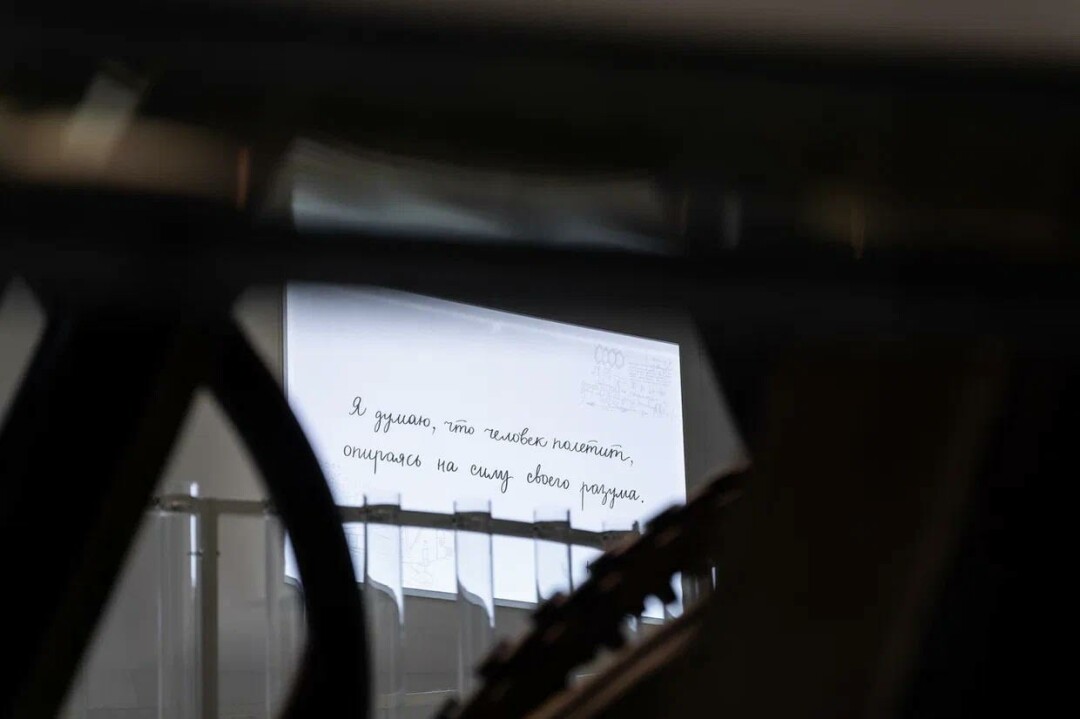 Я думаю, что человек полетит,
опираясь на силу своего разума.